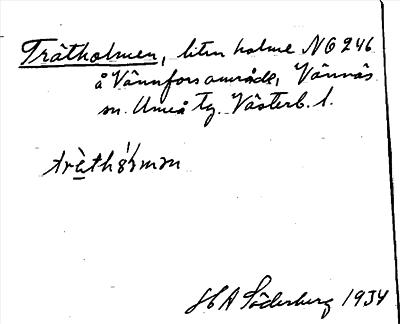 Tråtholmen, liten holme NO 246
å Vännfors område, Vännäs
sn. Umeå Tg. Västerb. l.
tràthɔ́lmən
H A Söderberg 1934